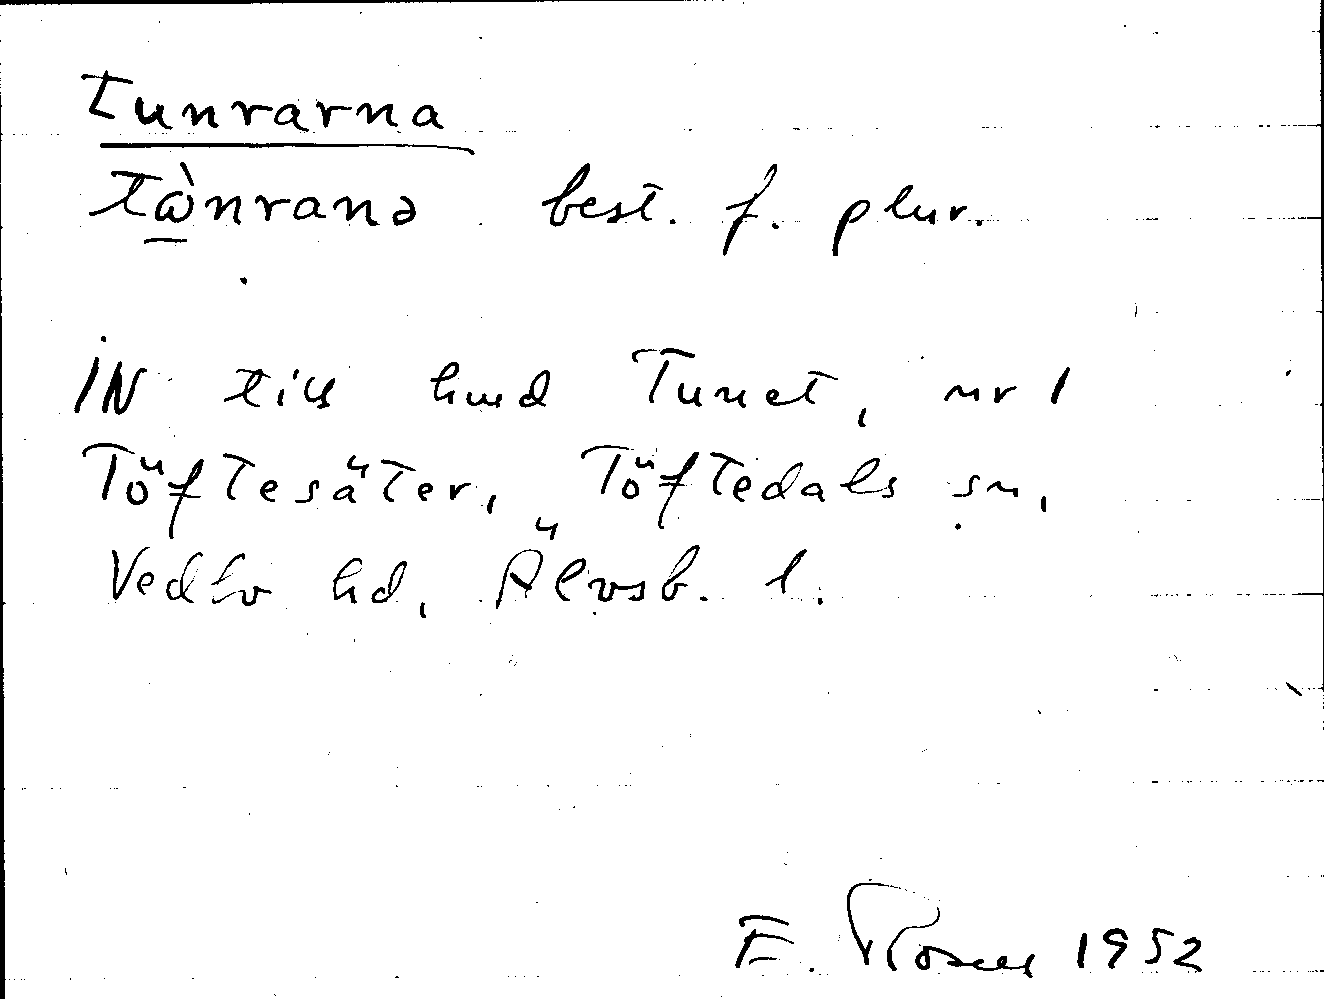 tunrarna
tὼ̲nranə best. f. plur.
IN till hmd Tunet, nr 1
Töftesäter, Töftedals sn,
Vedbo hd, Älvsb. l.
E. Rosell 1952